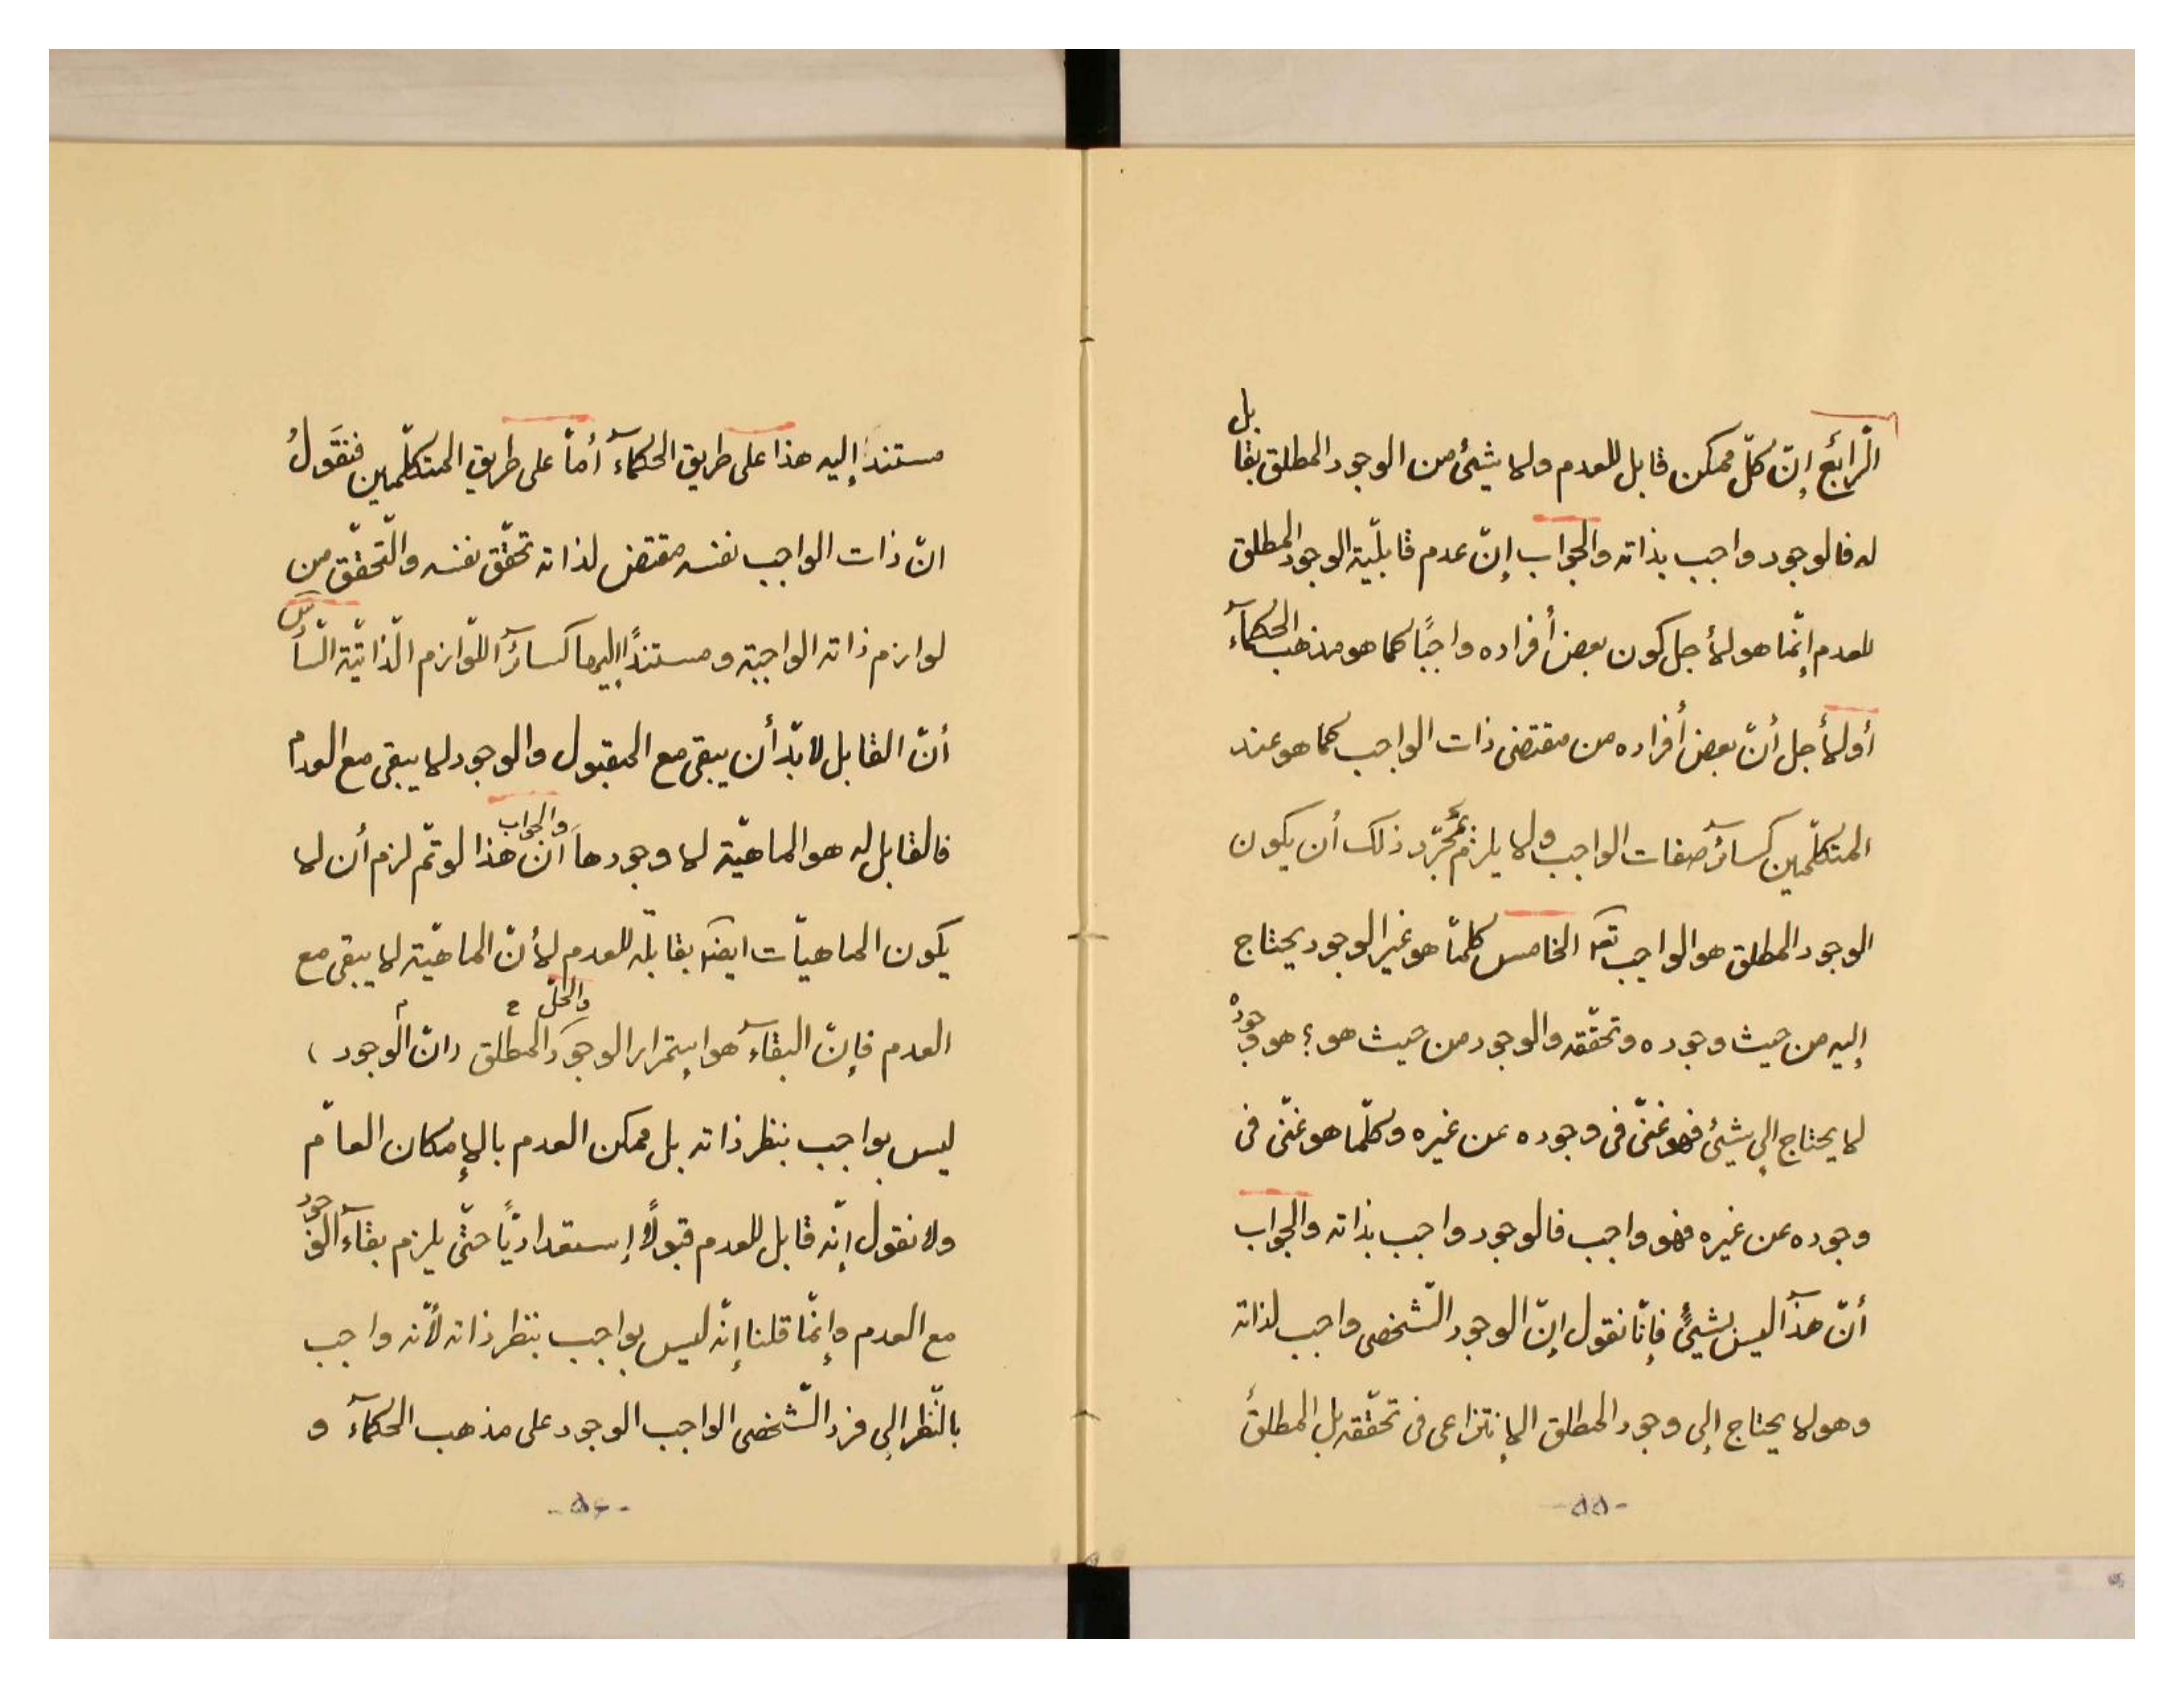 الرّابع إنّ كلّ ممكن قابل للعدم ولا شیئ من الوجود المطلق بقابل
له فالوجود واجب بذاته والجواب إنّ عدم قابلیّة الوجود المطلق
للعدم إنّما هو لأجل كون بعض أفراده واجبًا كما هو مذهب الحكمآء
أو لأجل أنّ بعض أفراده من مقتضی ذات الواجب كما هو عند
المتكلّمین كسائر صفات الواجب ولا یلزم بمجرّد ذلك أن یكون
الوجود المطلق هو الواجب تعـ الخامس كلمّا هو غیر الوجود یحتاج
إلیه من حیث وجوده وتحقّقه والوجود من حیث هو؛ هو وجودْ
لا یحتاج إلی شیئ فهو غنیّ فی وجوده عن غیره وكلّما هو غنیّ فی
وجوده عن غیره فهو واجب فالوجود واجب بذاته والجواب
أنّ هذا لیس بشیئٍ فإنّا نقول إنّ الوجود الشّخصی واجب لذاته
وهو لا یحتاج إلی وجود المطلق الإنتزاعی فی تحقّقه بل المطلق
-۵۵-
مستنداً إلیه هذا علی طریق الحكمآء أمّا علی طریق المتكلّمین فنقول
انّ ذات الواجب نفسه مقتضٍ لذاته تحقّق نفسه والتّحقّق من
لوازم ذاته الواجبة ومستنداً إلیها كسائر اللّوازم الذّاتیّة السّادس
أنّ القابل لابدّ أن یبقی مع المقبول والوجود لا یبقی مع العدم
فالقابل له هو الماهیّة لا وجودها والجواب أنّ هذا لو تمّ لزم أن لا
یكون الماهیاّت ایضـ بقابلة للعدم لأنّ الماهیّة لا یبقی مع
العدم فإنّ البقآء هو إستمرار الوجود والحلّ (انّ الوجود المطلق)
لیس بواجب بنظر ذاته بل ممكن العدم بالإمكان العامّ
ولا نقول إنّه قابل للعدم قبولًا إستعدادیًّا حتّی یلزم بقآء الوجود
مع العدم وإنّما قلنا إنّه لیس بواجب بنظر ذاته لأنّه واجب
بالنّظر إلی فرد الشّخصی الواجب الوجود علی مذهب الحكمآء و
-۵۶-